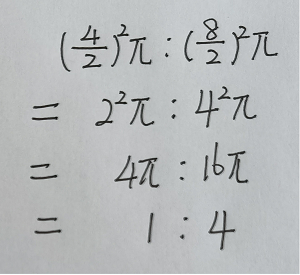 (4/2)²π : (8/2)²π
= 2²π : 4²π
= 4π : 16π
= 1 : 4